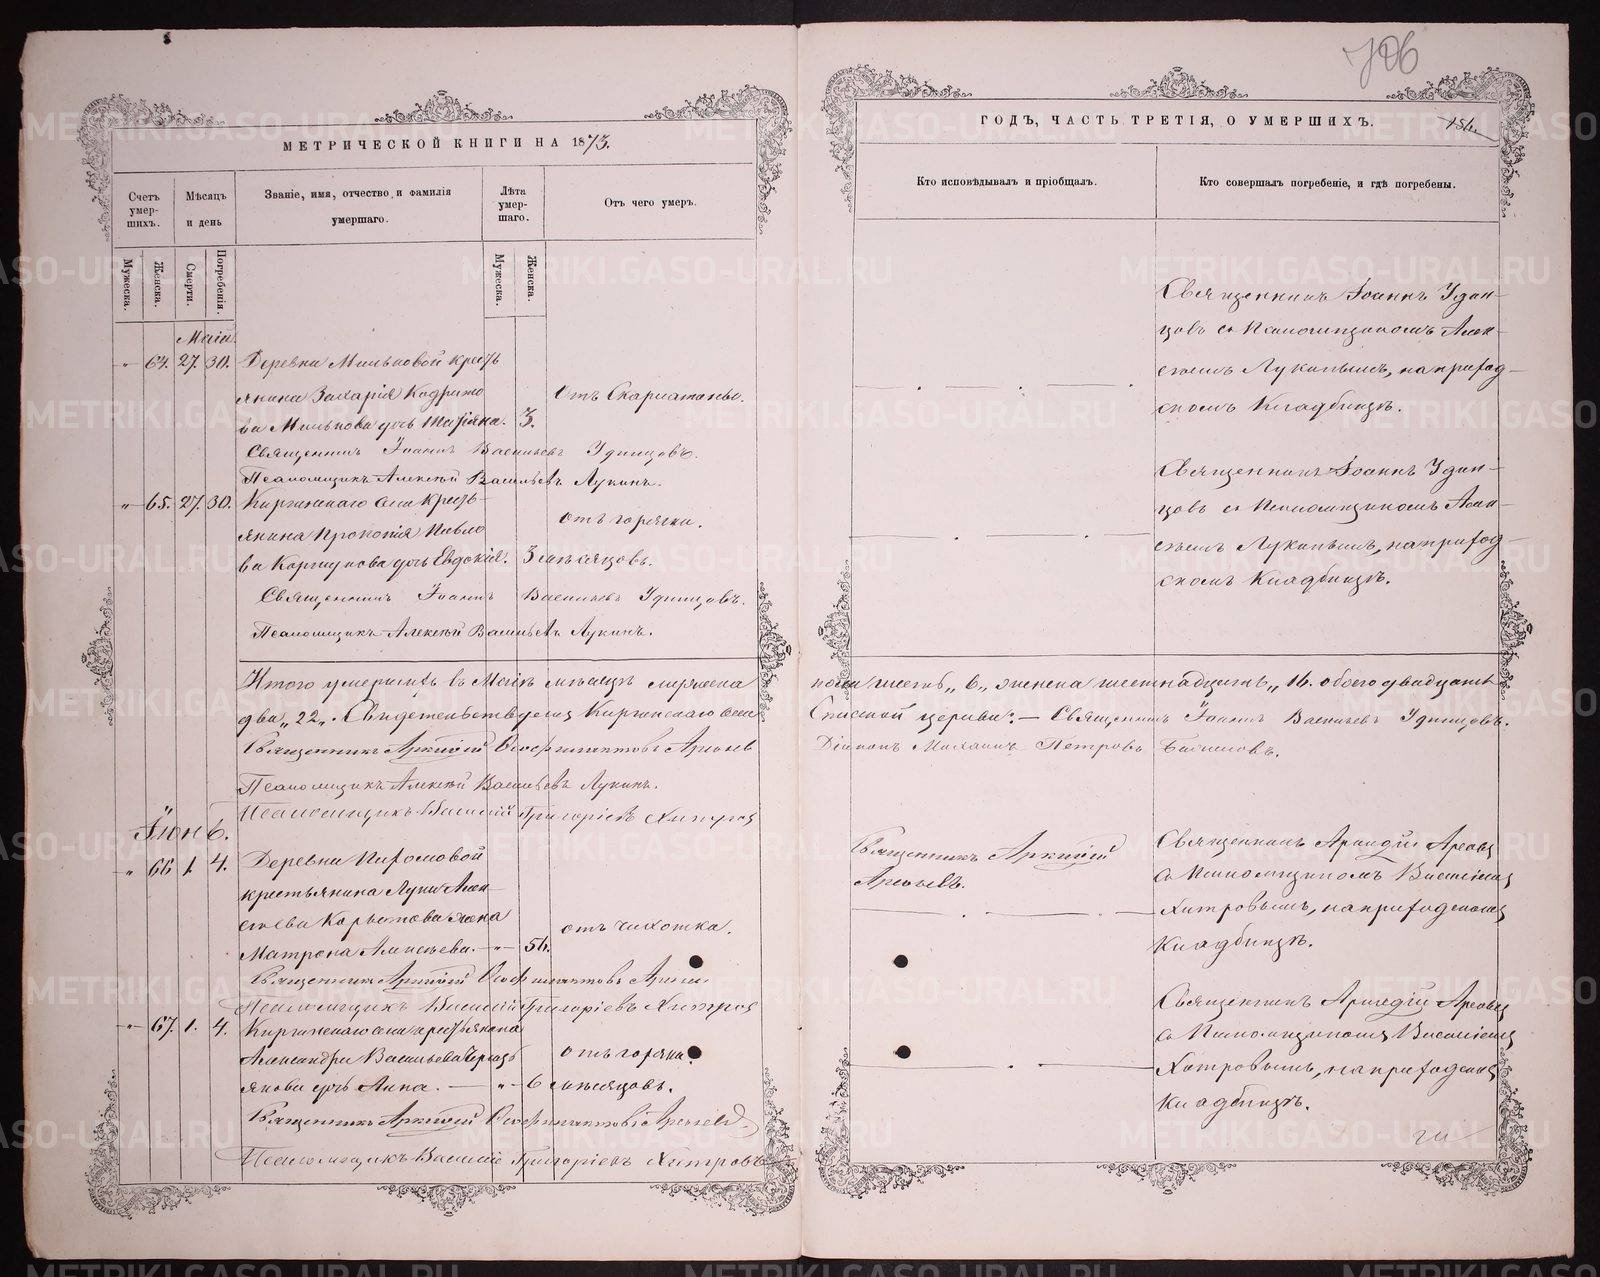 МЕТРИЧЕСКОЙ КНИГИ НА 1873.
Счетъ умер-шихъ.
Мѣсяцъ и день
Званіе, имя, отчество и фамилія умершаго.
Лѣта умер-шаго.
Отъ чего умеръ.
Мужеска.
Женска.
Смерти.
Погребенія.
Мужеска.
Женска.
Маій
" 64. 27. 30. Деревни Мильковой кресть
янина Захарія
ва Милькова дочь 3.
отъ Скарлатины.
Священникъ Іоаннъ Васильевъ Удинцовъ.
Псаломщикъ Алексѣй Васильевъ Лукинъ.
" 65. 27. 30. Киргинскаго села Кресть-
янина Прокопія Павло
ва Коршунова дочь Евдокія. 3 мѣсяцовъ.
отъ горячки.
Священникъ Іоаннъ Васильевъ Удинцовъ.
Псаломщикъ Алексѣй Васильевъ Лукинъ.
Итого умершихъ въ Маіѣ мѣсяцѣ мужеска
два „22„. Киргинскаго села
Священникъ Аркадій Арефьевъ
Псаломщикъ Алексѣй Васильевъ Лукинъ.
Псаломщикъ Василій Григоріевъ Хитровъ
Іюнь.
" 66 1. 4. Деревни Пахомовой
крестьянина Луки Алек-
сѣева жена
Матрона Алексѣева. — " — 56.
отъ чихотка.
Священникъ Аркадій
Псаломщикъ Василій Григоріевъ Хитровъ
" 67. 1. 4. Киргинскаго села крестьянина
Александра Васильева
дочь Анна. — " — 6 мѣсяцовъ.
отъ горячки.
Священникъ Аркадій Арефьевъ
Псаломщикъ Василій Григоріевъ Хитровъ
706
ГОДЪ, ЧАСТЬ ТРЕТІЯ, О УМЕРШИХЪ.
156.
Кто исповѣдывалъ и пріобщалъ.
Кто совершалъ погребеніе, и гдѣ погребены.
Священникъ Іоаннъ Удин-
цовъ съ Псаломщикомъ Алек-
сѣемъ Лукинымъ, на приход-
скомъ Кладбищѣ.
Священникъ Іоаннъ Удин-
цовъ съ Псаломщикомъ Алек-
сѣемъ Лукинымъ, на приход-
скомъ Кладбищѣ.
пола шесть „6„ женска шестнадцать „16. обоего двадцать
Спасской церкви: — Священникъ Іоаннъ Васильевъ Удинцовъ.
Діаконъ Михаилъ Петровъ
Священникъ Аркадій
Арефьевъ.
Священникъ Аркадій Арефьевъ
съ Псаломщикомъ Василіемъ
Хитровымъ, на приходскомъ
Кладбищѣ.
Священникъ Аркадій Арефьевъ
съ Псаломщикомъ Василіемъ
Хитровымъ, на приходскомъ
Кладбищѣ.
METRIKI.GASO-URAL.RU